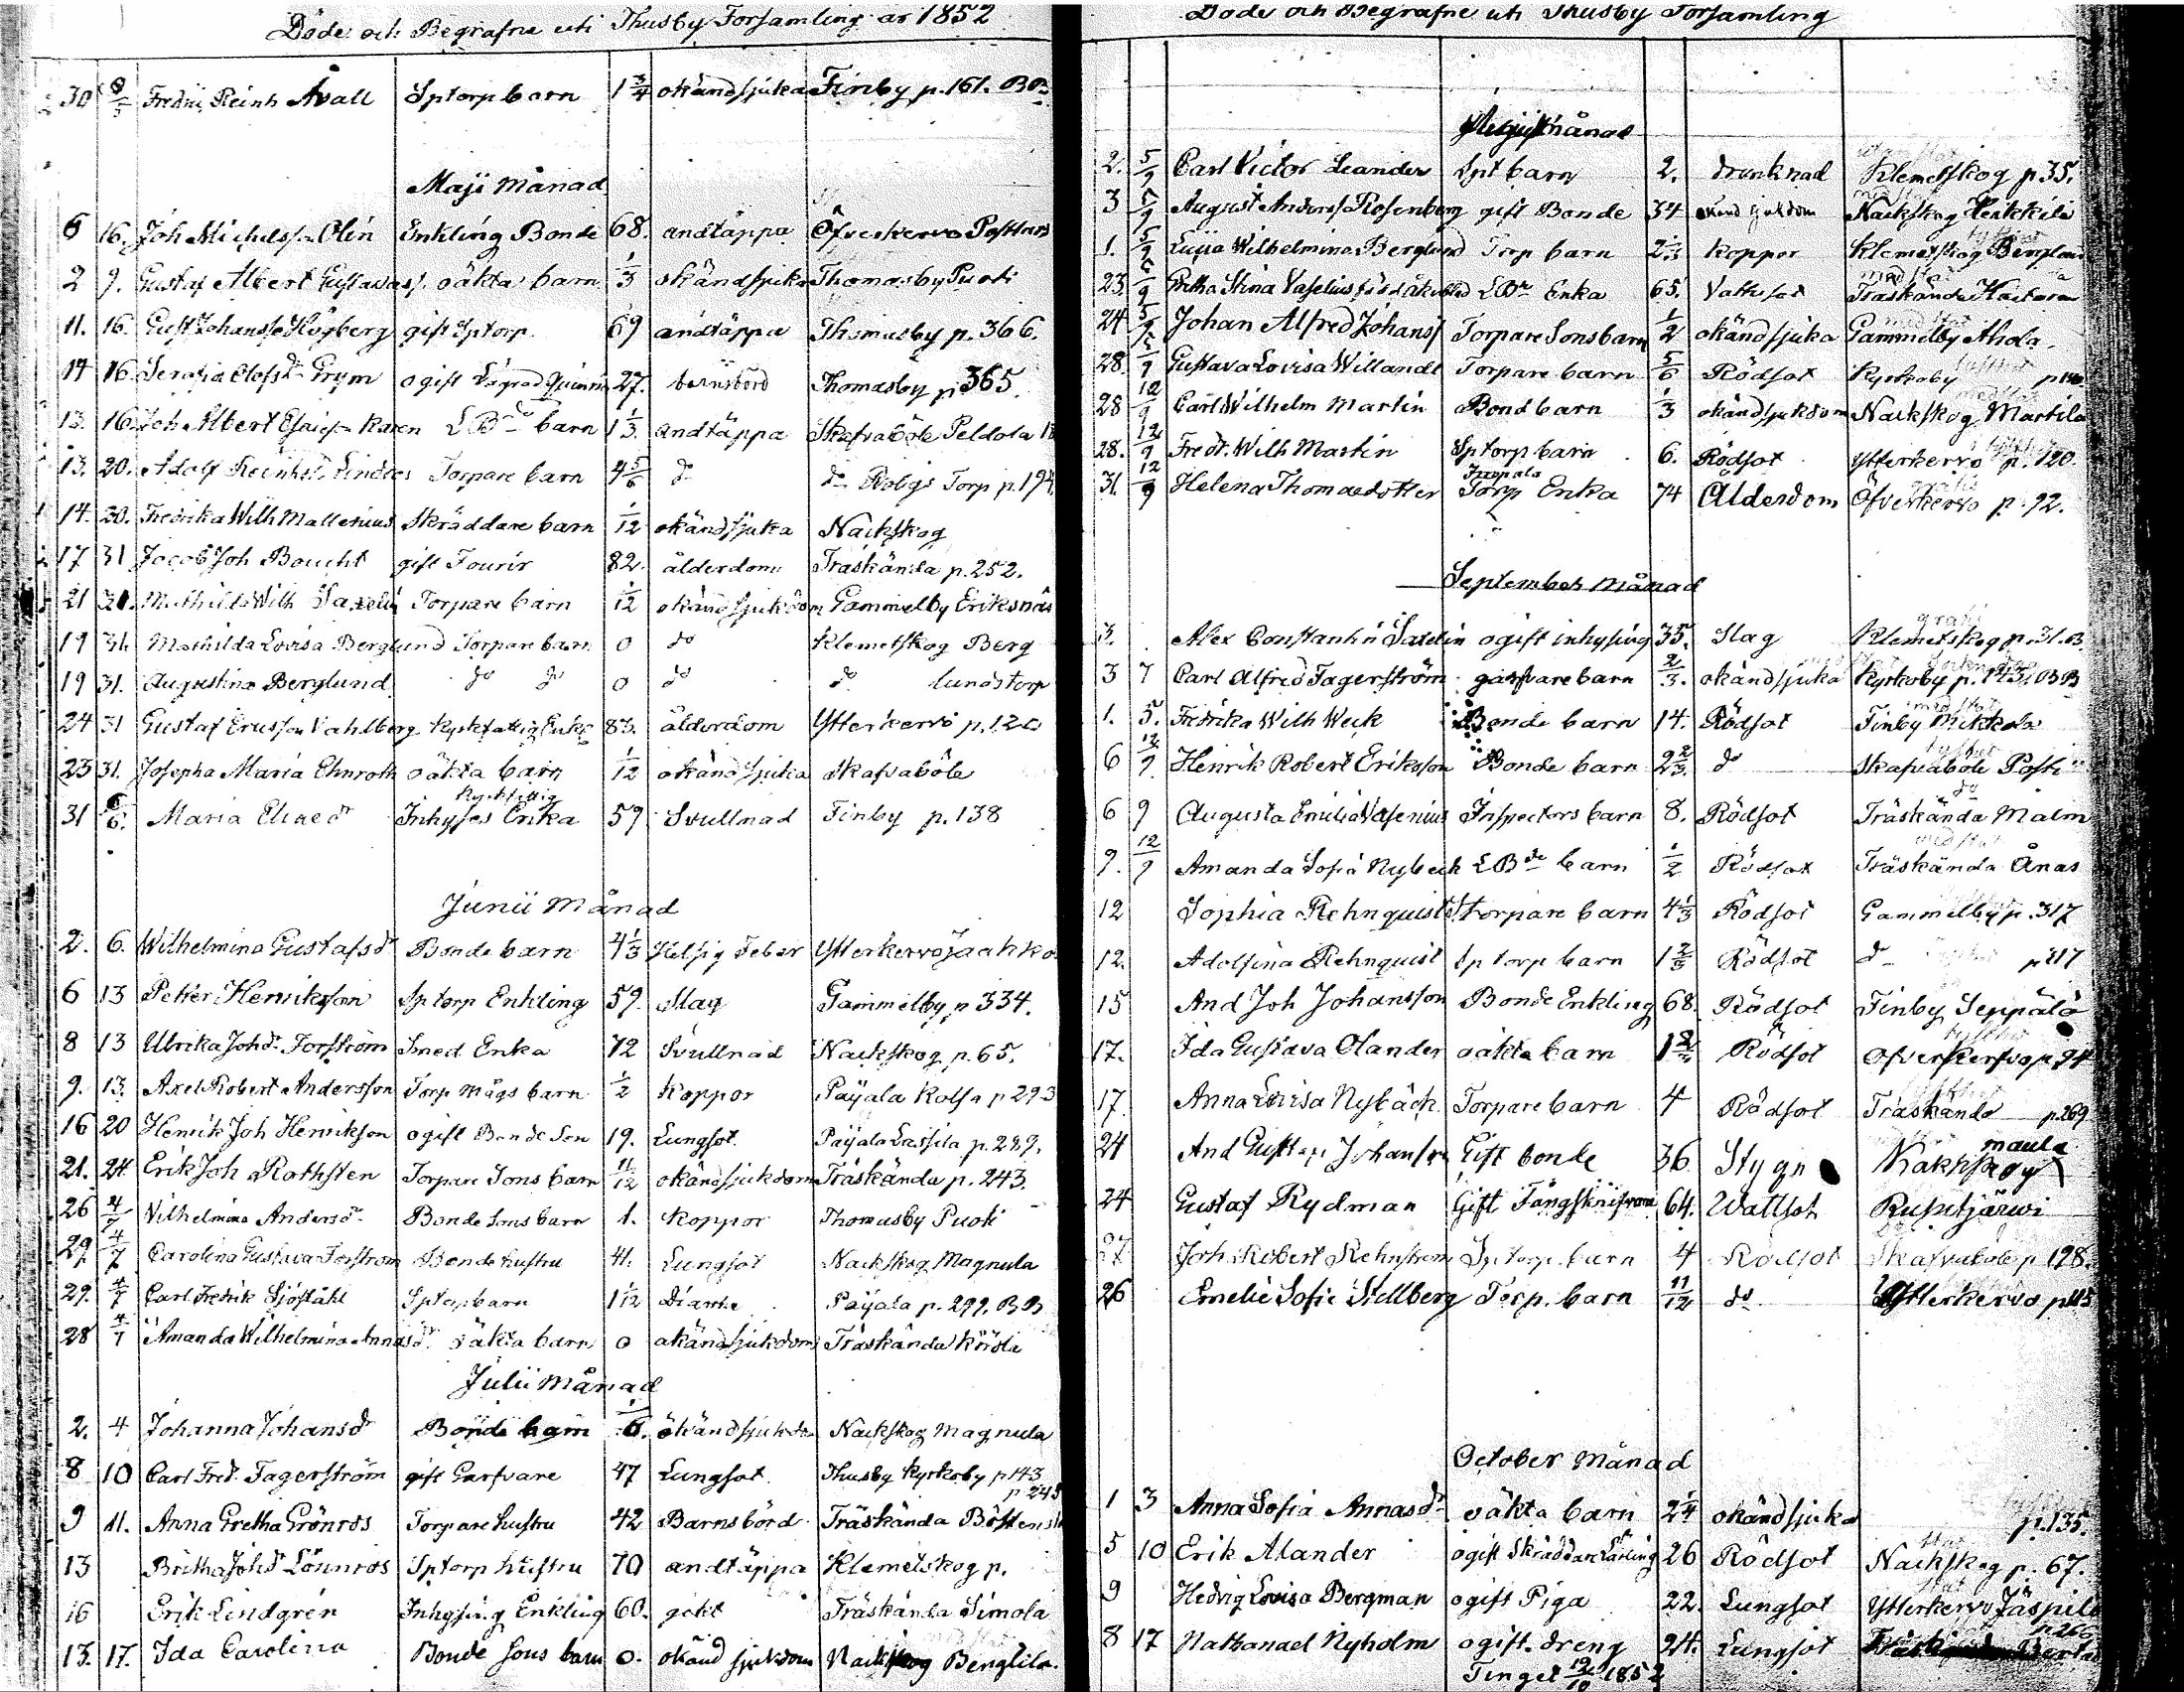 Döde och Begrafne uti Thusby Forsamling år 1852
30 Fredric Reinh Åvall Sptorp barn 1 3/4 okänd sjuka Finby p. 161. BB
Maji Månad
6 16. Joh Michelsson Olin Enkling Bonde 68. andtäppa Öfverkervo
2 9. Gustaf Albert Gustavass. oäkta barn 1/3 okänd sjuka Thomasby Puoti
11. 16. Gust Johansson Högberg gift Sptorp. 69 andtäppa Thomasby p. 366.
14 16 Serafia Olofsdr Grym ogift Lägrad Quinna 27. barnsbörd Thomasby p 365.
13. 16. Joh Albert barn 1 1/3 andtäppa Skafvaböle Peldola
13. 20. Adolf Torpare barn 4 5/6 do do Robgs Torp p. 194.
14. 30. Fredrika Wilh Mallenius Skräddare barn 1/12 okänd sjuka Nackskog
17 31 Jacob Joh Boucht gift Fourir 82. ålderdom Träskända p. 252.
21 31. Mathilda Wilh Saxelin Torpare barn 1/12 okänd sjukdom Gammelby Eriksnäs
19 31. Mathilda Lovisa Berglund Torpare barn 0 do Klemetskog Berg
19 31. Augustina Berglund do do 0 do do lunds torp
24 31 Gustaf Ericsson Vahlberg Kyrkfattig Enkl 83. ålderdom Ytterkervo p. 120
23 31. Josepha Maria Ehnroth oäkta barn 1/12 okänd sjuka Skafvaböle
Kyrkfattig
31 6/6. Maria Eliaedr Inhyses Enka 59 Svullnad Finby p. 138
Junii Månad
2. 6. Wilhelmina Gustafsdr Bonde barn 4 1/3 Hetsig Feber Ytterkervo Jaahko
6 13 Petter Henriksson Sptorp Enkling 59. Slag Gammelby p 334.
8 13 Ulrika Johdr Forsström Smed Enka 72 Svullnad Nackskog p. 65.
9. 13. Axel Robert Andersson Torp mågs barn 1/2 Koppor Päyala Kolsa p 293
16 20 Henrik Joh Henriksson ogift Bonde Son 19. Lungsot. Päyala Lassila p. 289.
21. 24 Erik Joh Rothsten Torpare Sons barn 11/12 okänd sjukdom Träskända p. 243.
26 4/7 Vilhelmina Andersdr Bonde Sons barn 1. Koppor Thomasby Puoti
29. 4/7 Carolina Gustava Forsström Bonde hustru 41. Lungsot Nackskog Magnula
29. 4/7 Carl Fredrik Sjöståhl Sptorp barn 1 1/12 Diarrhe Päyala p. 299. BB
28 4/7 Amanda Wilhelmina Annasdr. oäkta barn 0 okänd sjukdom Träskända
Julii Månad
2. 4 Johanna Johansdr Bonde barn okänd sjukdom Nackskog Magnula
8 10 Carl Fred. Fagerström gift Garfvare 47 Lungsot. Thusby Kyrkoby p 143
p 245
9 11. Anna Gretha Grönroos Torpare hustru 42 Barnsbörd Träskända
13 Britha Johdr Lönnroos Sptorp hustru 70 andtäppa Klemetskog p.
16 Erik Lindgrén Inhysing Enkling 60. gikt Träskända Simola
13. 17. Ida Carolina Bonde Sons barn 0. okänd sjukdom Nackskog Bengtila.
Döde och Begrafne uti Thusby Forsamling
månad
2. 5/9 Carl Victor Leander Spt barn 2. drunknad Klemetskog p 35.
3 5/9 August Anderss Rosenberg gift Bonde 34 okänd sjukdom Nackskog Heikkilä
1. 5/9 Lusia Wilhelmina Berglund Torp barn 2 1/3 koppor Klemetskog Berglund
23. 5/9 Gretha Stina Vaselius LBde Enka 65. Vattusot Träskända
24 5/9 Johan Alfred Johanss Torpare Sons barn 1/2 okänd sjuka Gammelby Ahola
28. 5/9 Gustava Lovisa Willandt Torpare barn 5/6 Rödsot Kyrkoby
28 12/9 Carl Wilhelm Martin Bond barn 1/3 okänd sjukdom Nackskog Martila
28. 12/9 Fredr. Wilh Martin Sptorp barn 6. Rödsot Ytterkervo p. 120.
31. 12/9 Helena Thomaedotter Torp Enka 74 Ålderdom Öfverkervo p. 92.
September Månad
grati
3. Alex Constantin Saxelin ogift inhysing 35. Slag Klemetskog p. 31. B
3 7 Carl Alfred Fagerström garfvare barn 2/3. okänd sjuka Kyrkoby p. 143. BB
1. 5. Fredrika Wilh Weik Bonde barn 14. Rödsot Finby Mikkola
6 12/9. Henrik Robert Eriksson Bonde barn 2 2/3. do Skafvaböle Posti
6 9 Augusta Emilia Vasenius Inspectors barn 8. Rödsot Träskända Malm
9. 12/9 Amanda Sofia Nybeck LBde barn 1/2 Rödsot Träskända Ånas
12 Sophia Rehnquist Storpare barn 4 1/3 Rödsot Gammelby p. 317
12. Adolfina Rehnquist Sptorp barn 1 2/3 Rödsot do p 317
15 And Joh Johansson Bonde Enkling 68. Rödsot Finby Seppälä
17. Ida Gustava Olander oäkta barn Rödsot Öfverkervo p. 94
17. Anna Lovisa Nybäck Torpare barn 4 Rödsot Träskända p 269
maula
24 And Gustaf Johansson Gift bonde 36 Stygn Nakkskog
24 Gustaf Rydman Gift 64. Wattsot Rusutjärwi
27 Joh Robert Rehnström Sptorp barn 4 Rödsot Skafvaböle p 198.
26 Emelie Sofie Stellberg Torp. barn 11/12 do. Ytterkervo p 115
October Månad
1 3 Anna Sofia Annasdr oäkta barn 2 1/4 okänd sjuka p. 135.
5 10 Erik Alander ogift Skräddare Lärling 26 Rödsot Nackskog p. 67.
9 Hedvig Lovisa Bergman ogift Piga 22. Lungsot Ytterkervo Jäspilä
p. 266
8 17 Nathanael Nyholm ogift dreng 24. Lungsot
Tinget 19/10 1852